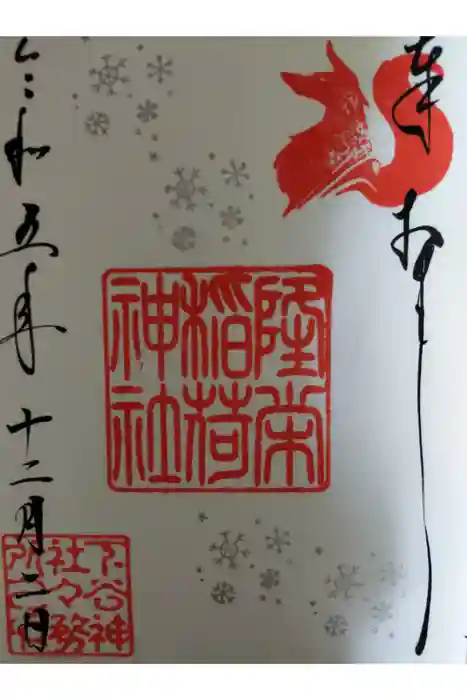 奉拝
隆栄
稲荷
神社
令和五年十二月二日
下谷神
社々務
所印